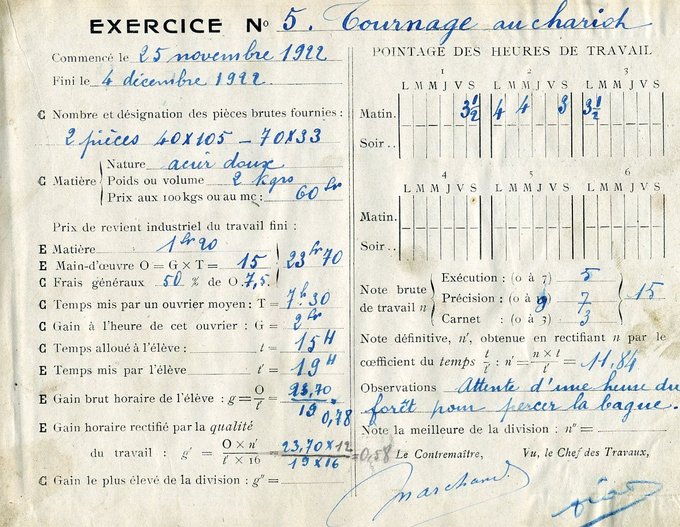 EXERCICE No 5. Tournage au chariot
Commencé le 25 novembre 1922
Fini le 4 décembre 1922.
C Nombre et désignation des pièces brutes fournies :
2 pièces 40x105 – 70x33
C Matière
Nature acier doux
Poids ou volume 2 kgrs
Prix aux 100 kgs ou au mc: 60 fr
Prix de revient industriel du travail fini :
E Matière 1 fr 20
E Main-d'œuvre O = G × T = 15
C Frais généraux 50 % de O. 7,5
23 fr 70
C Temps mis par un ouvrier moyen : T = 7h. 30
C Gain à l'heure de cet ouvrier : G = 2 fr
C Temps alloué à l'élève : t = 15 H
E Temps mis par l'élève t' = 19 H
E Gain brut horaire de l'élève : g = O/t' = 23,70/19 = 0,78
E Gain horaire rectifié par la qualité
du travail : g' = O × n'/t' × 16 = 23,70 x 12/19 x 16 = 0,58
C Gain le plus élevé de la division : g" =
POINTAGE DES HEURES DE TRAVAIL
1 2 3
L M M J V S L M M J V S L M M J V S
Matin. 3½ 4 4 3 3½
Soir ..
4 5 6
L M M J V S L M M J V S L M M J V S
Matin.
Soir ..
Note brute de travail n
Exécution : (0 à 7) 5
Précision : (0 à 9) 7
Carnet : (0 à 3) 3
15
Note définitive, n', obtenue en rectifiant n par le
cœfficient du temps t/t' : n' = n × t/t' = 11,84
Observations Attente d'une heure du
forêt pour percer la bague.
Note la meilleure de la division : n" =
Le Contremaître, Vu, le Chef des Travaux,
Marchand